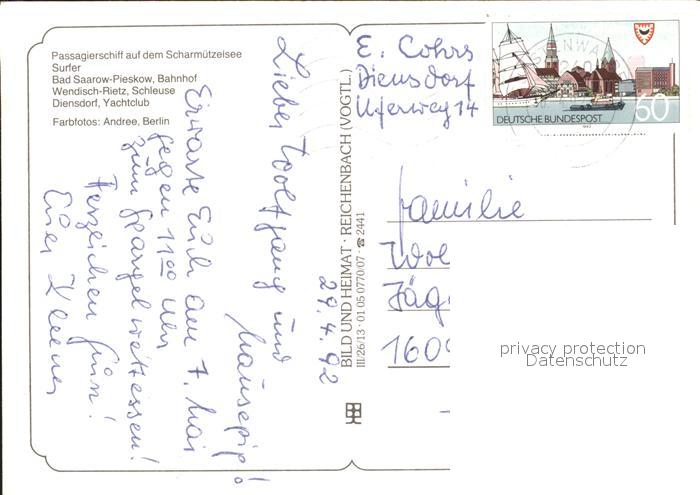 Passagierschiff auf dem Scharmützelsee
Surfer
Bad Saarow-Pieskow, Bahnhof
Wendisch-Rietz, Schleuse
Diensdorf, Yachtclub
Farbfotos: Andree, Berlin
29.4.92
Lieber Wolfgang und
Mausepip!
Erwarte Euch am 7. Mai
gegen 11⁰⁰ Uhr
zum Spargelwettessen!
Herzeichen
Euer
BILD UND HEIMAT · REICHENBACH (VOGTL.)
III/26/13 · 01 05 0770/07 · ☎ 2441
E. Cohrs
Diensdorf
Uferweg 14
DEUTSCHE BUNDESPOST
60
1992
Familie
Wol
Jäg
160
privacy protection
Datenschutz